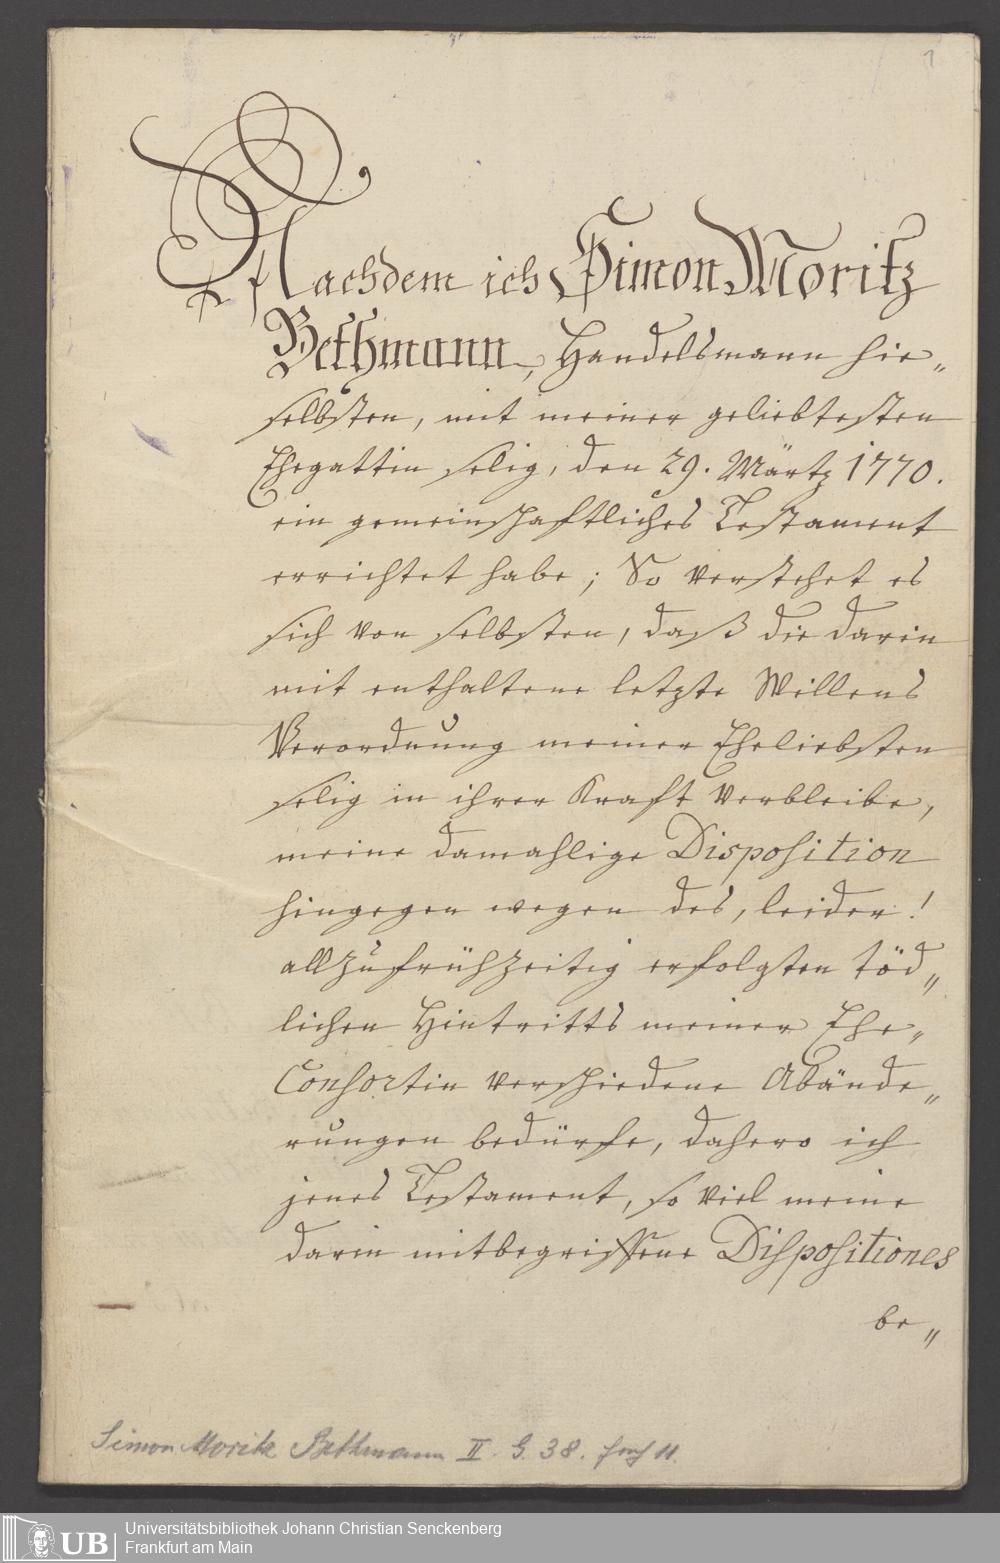 1
Nachdem ich Simon Moritz
Bethmann, Handelsmann hie„
selbsten, mit meiner geliebtesten
Ehegattin selig, den 29. Märtz 1770.
ein gemeinschaftliches Testament
errichtet habe; So verstehet es
sich von selbsten, daß die darin
mit enthaltene letzte Willens
Verordnung meiner Eheliebsten
selig in ihrer Kraft verbleibe,
meine damahlige Disposition
hingegen wegen des, leider!
allzufrühzeitig erfolgten töd„
lichen Hintritts meiner Ehe„
Consortin verschiedene Abände„
rungen bedürfe, dahero ich
jenes Testament, so viel meine
darin mitbegriffene Dispositiones
be„
Simon Moritz Bethmann II. G. 38. 11.
UB
Universitätsbibliothek Johann Christian Senckenberg
Frankfurt am Main